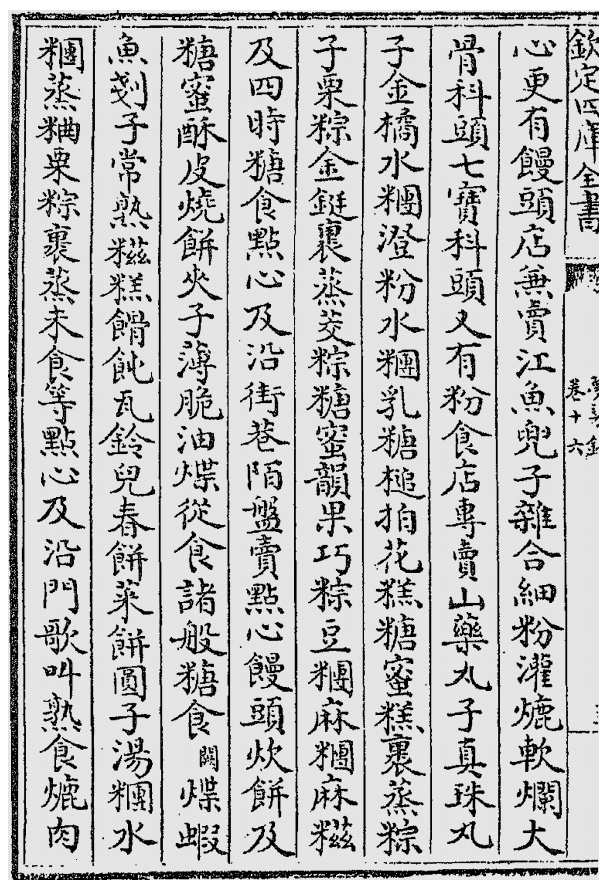 欽定四庫全書
卷十六
心更有饅頭店兼賣江魚兜子雜合細粉灌熝軟爛大
骨科頭七寶科頭又有粉食店專賣山藥丸子真珠丸
子金橘水糰澄粉水糰乳糖槌拍花糕糖蜜糕裹蒸粽
子栗粽金鋌裹蒸茭粽糖蜜韻果巧粽豆糰麻糰麻糍
及四時糖食點心及沿街巷陌盤賣點心饅頭炊餅及
糖蜜酥皮燒餅夾子薄脆油煠從食諸般糖食闕煠蝦
魚剗子常熟糍糕餶飩瓦鈴兒春餅菜餅圓子湯糰水
糰蒸粬栗粽裹蒸米食等點心及沿門歌叫熟食熝肉